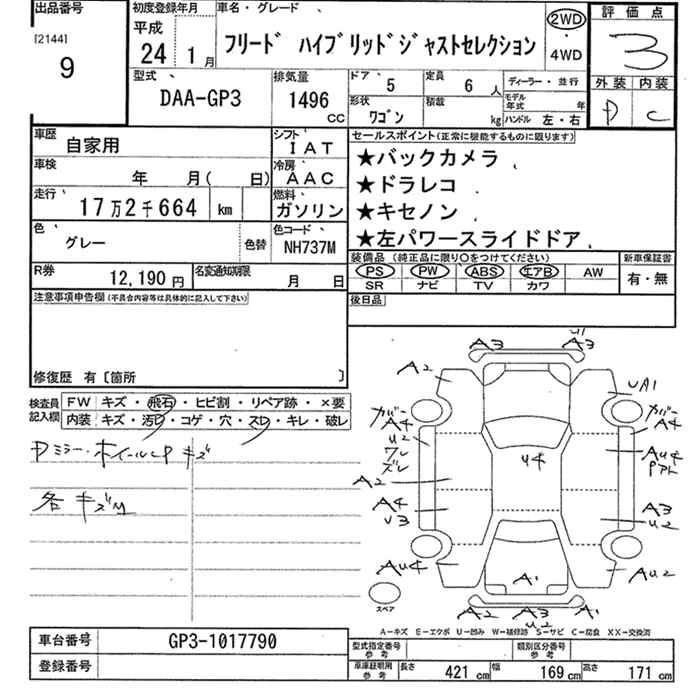 出品番号
[2144]
9
初度登録年月
平成
24年 1月
車名・グレード
フリード ハイブリッドジャストセレクション
2WD
・
4WD
評価点
3
外装 内装
D C
型式
DAA-GP3
排気量
1496 CC
ドア 5
定員 6 人
形状 ワゴン
積載 kg
ディーラー・並行
モデル年式 年
ハンドル 左・右
車歴 自家用
シフト IAT
車検 年 月( 日)
冷房 AAC
走行 17万2千664 km
燃料 ガソリン
色 グレー 色替
色コード NH737M
R券 12,190円
名変通知期限 月 日
セールスポイント(正常に機能するものに限ります)
★バックカメラ
★ドラレコ
★キセノン
★左パワースライドドア
装備品 (純正品に限り〇をつけてください)
PS PW ABS エアB AW
SR ナビ TV カワ
新車保証書
有・無
後日品
注意事項申告欄(不具合内容等は具体的に記入して下さい)
修復歴 有〔箇所 〕
検査員記入欄
FW キズ・飛石・ヒビ割・リペア跡・×要
内装 キズ・汚レ・コゲ・穴・スレ・キレ・破レ
Dミラー・ホイールCP キズ
各キズ
A3 U1 A3
A2 UA1
カバー A4 カバー A4
U2 ワレ ズレ
U4
AU4 Pアト
A2
A4 U3
A3 U2
AU4 AU2
A1
A2 A3 U2 A1
スペア
A-キズ E-エクボ U-凹み W-補修跡 S-サビ C-腐食 XX-交換済
車台番号 GP3-1017790
登録番号
型式指定番号 参考
類別区分番号 参考
車庫証明用 参考
長さ 421 cm 幅 169 cm 高さ 171 cm